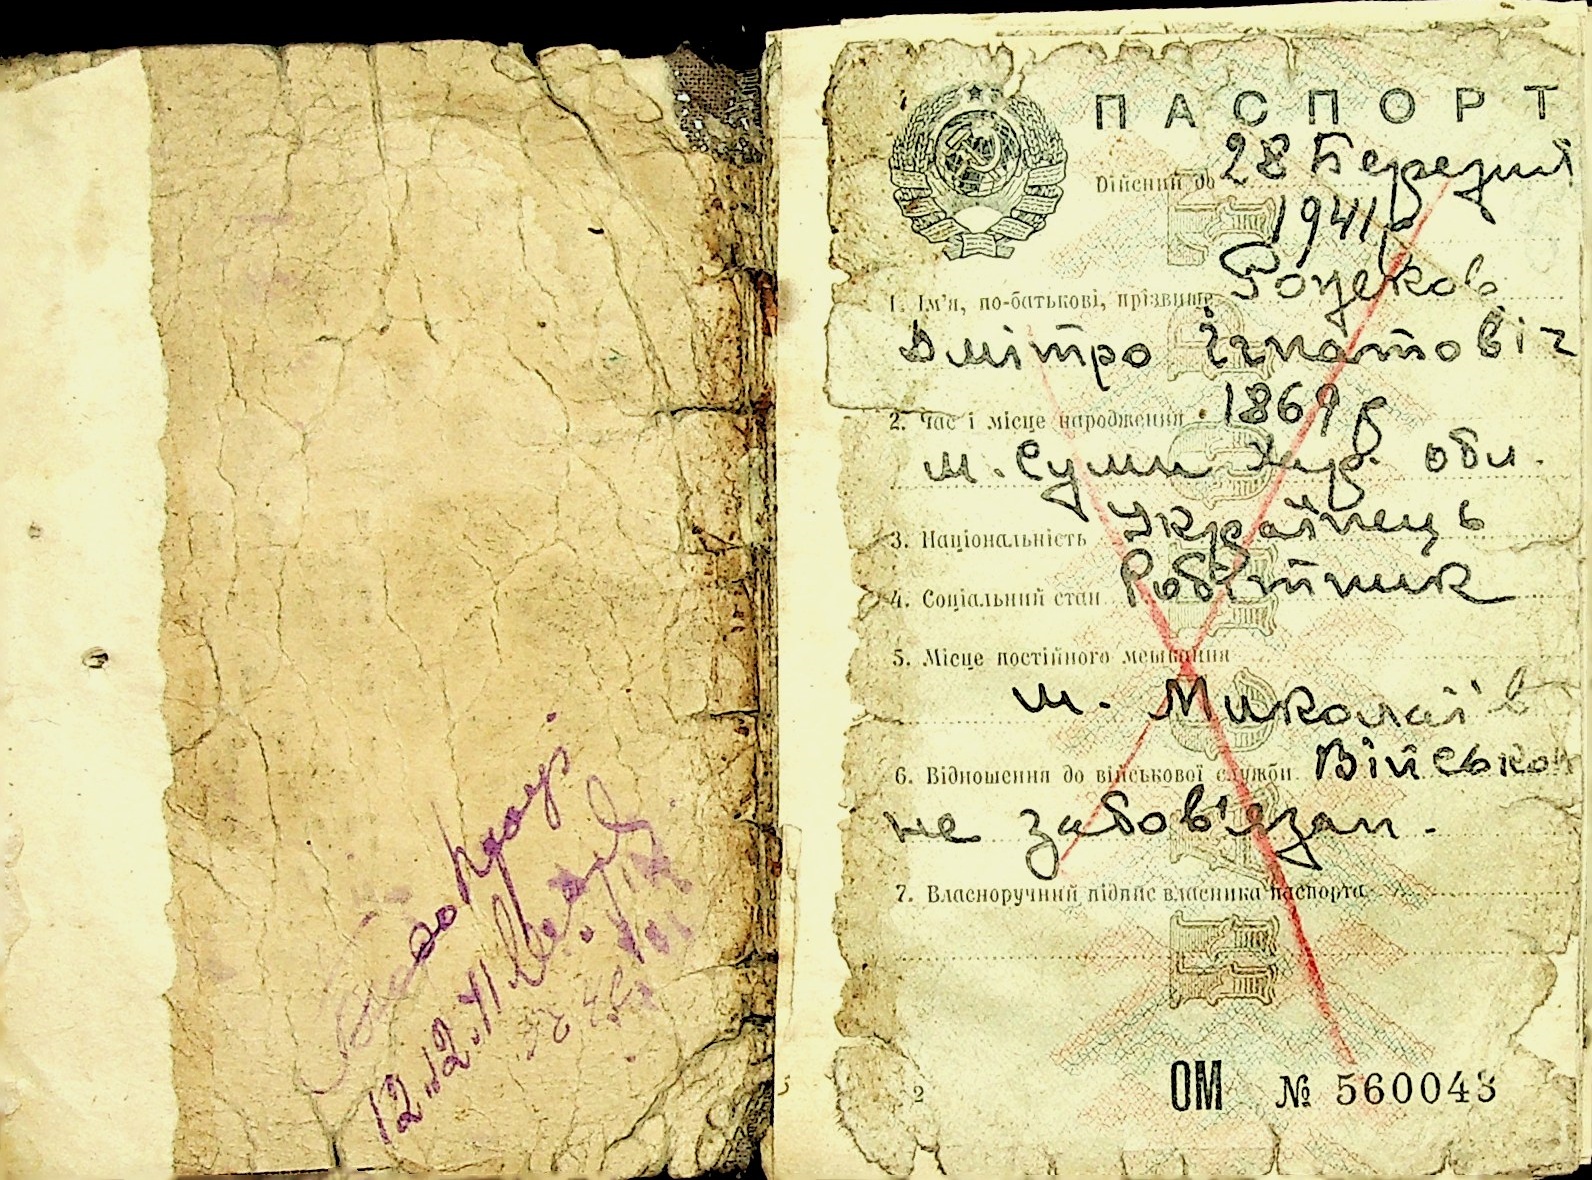 12.12.41
ПАСПОРТ
Дійсний до 28 Березня
1941 р
1. Ім'я, по-батькові, прізвище
Дмітро Ігнатовіч
2. Час і місце народження 1869 р
м. Суми Хар. обл.
3. Національність Українець
4. Соціальний стан Робітник
5. Місце постійного мешкання
м. Миколаїв
6. Відношення до військової служби Військово
не забов'язан.
7. Власноручний підпис власника паспорта
2
ОМ № 560043